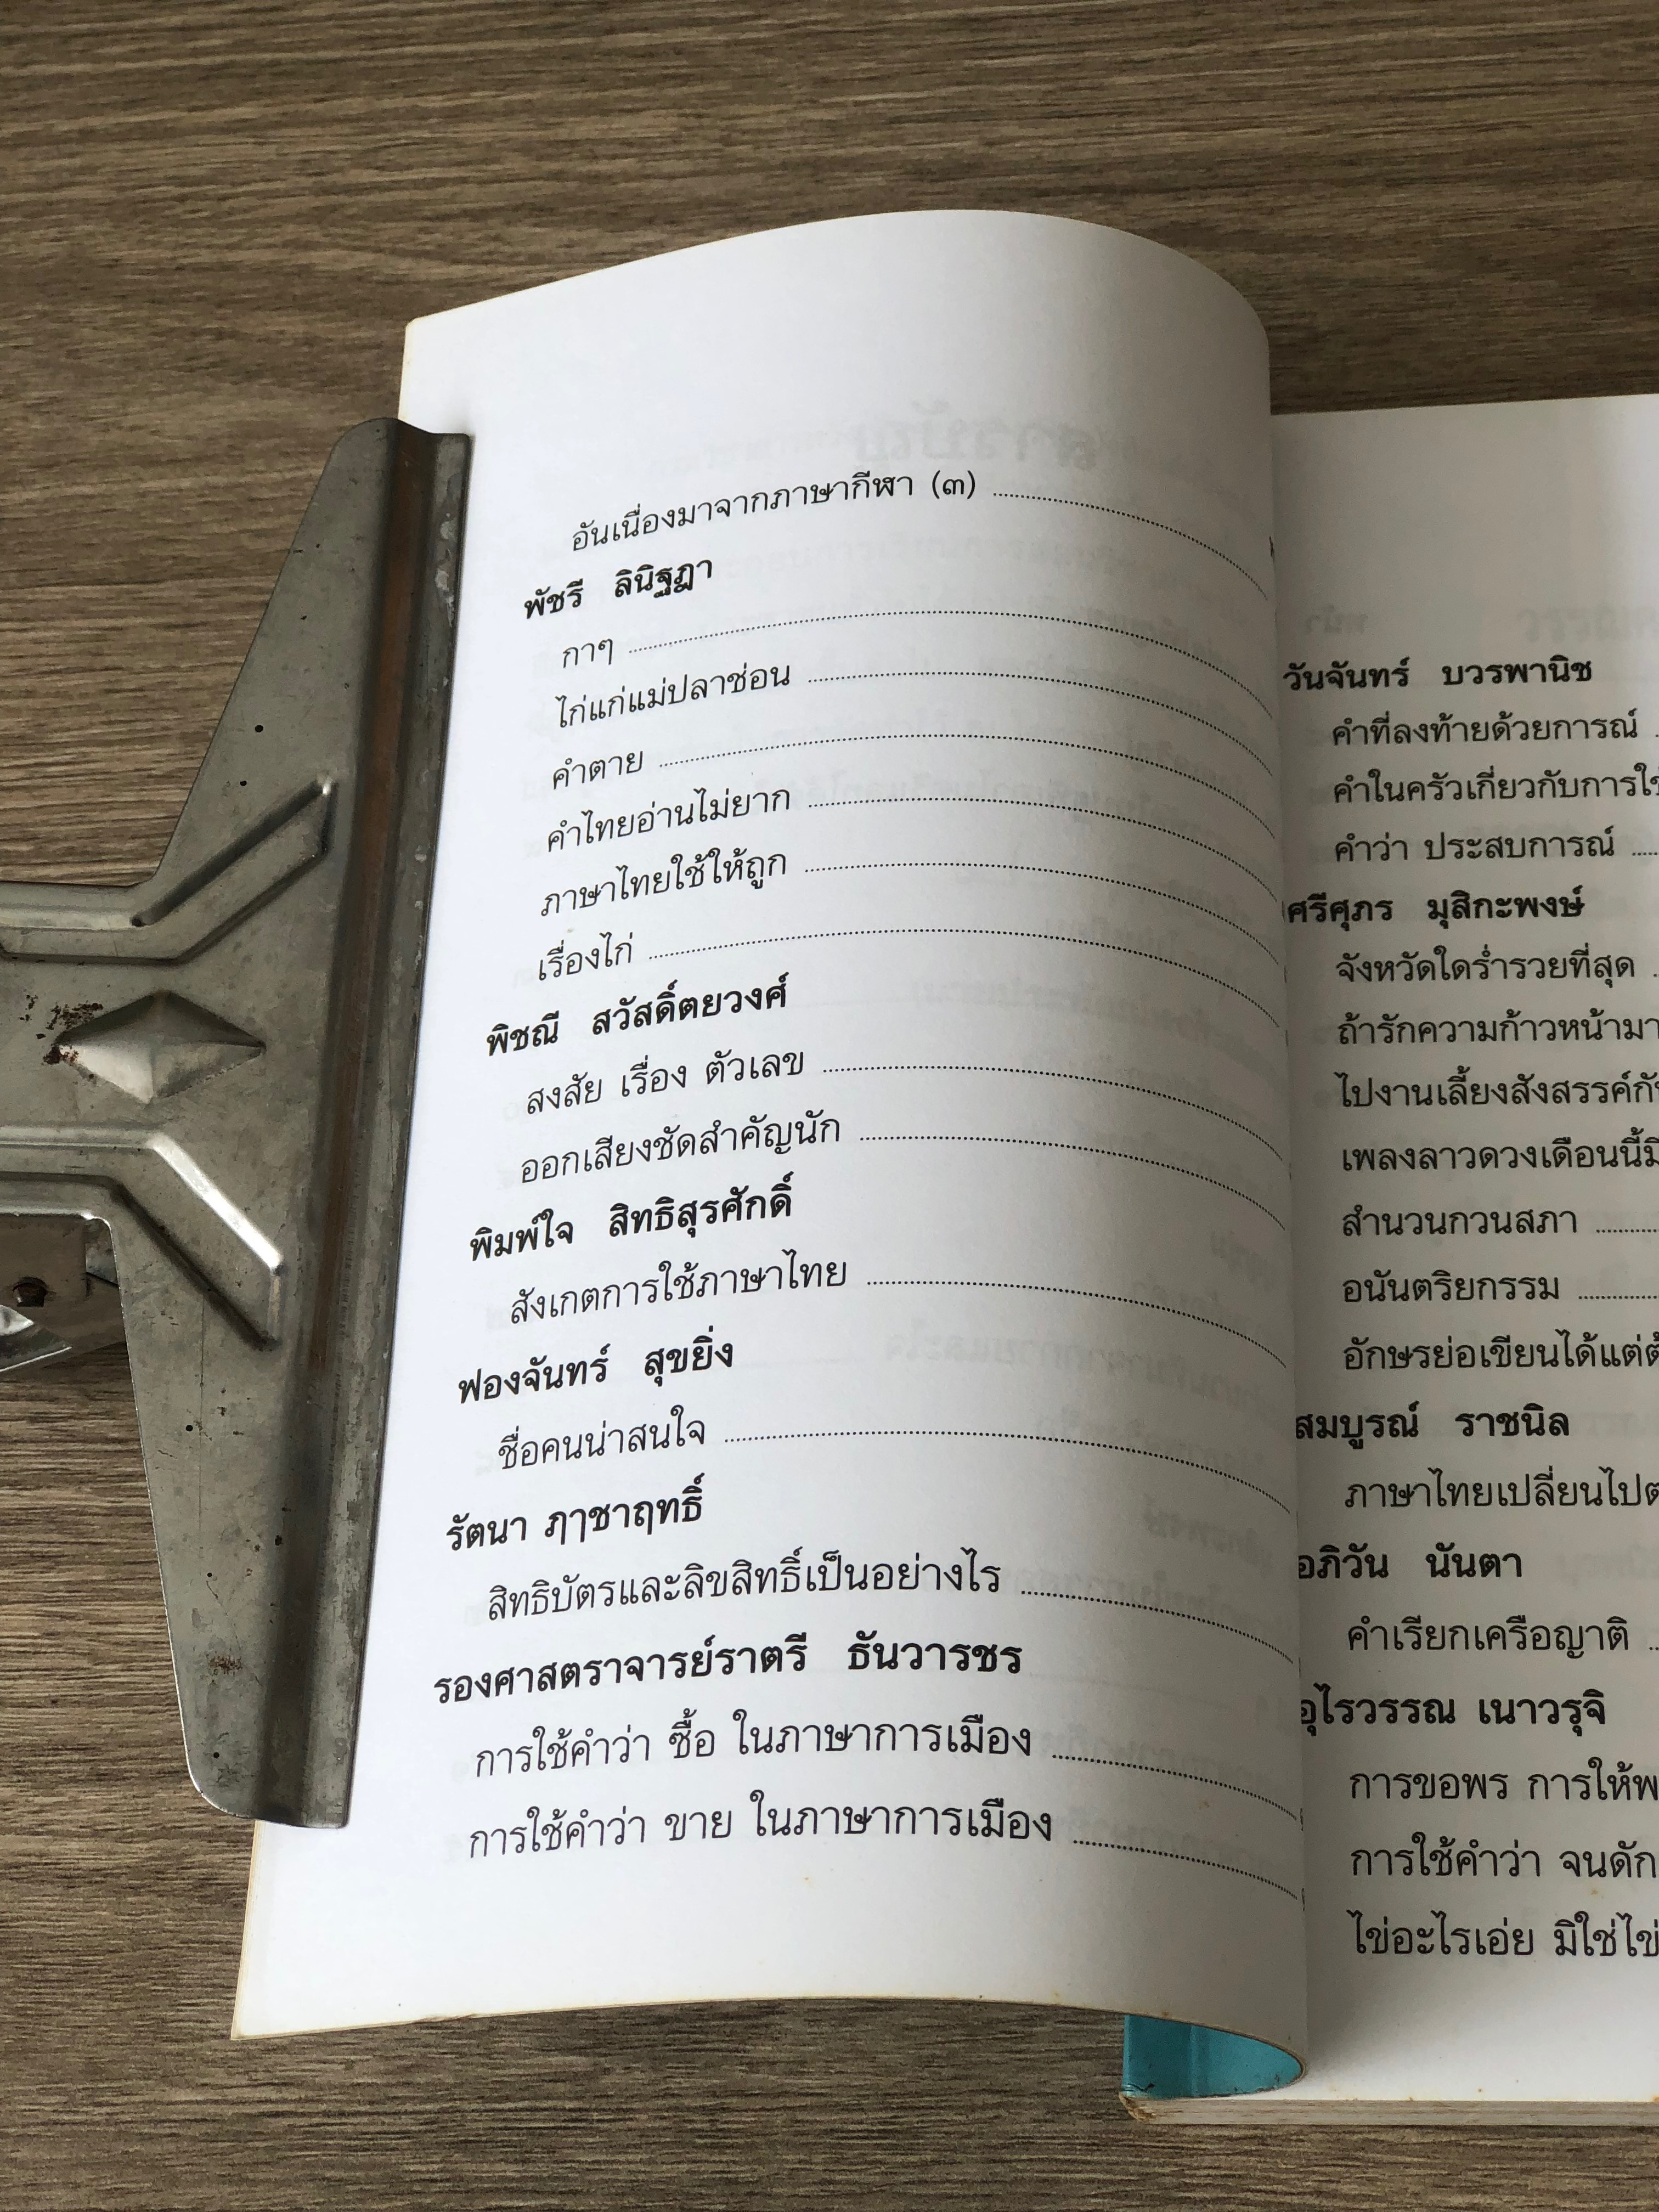 อันเนื่องมาจากภาษากีฬา (๓)
พัชรี ลินิฐฎา
กาๆ
ไก่แก่แม่ปลาช่อน
คำตาย
คำไทยอ่านไม่ยาก
ภาษาไทยใช้ให้ถูก
เรื่องไก่
พิชณี สวัสดิ์ตยวงศ์
สงสัย เรื่อง ตัวเลข
ออกเสียงชัดสำคัญนัก
พิมพ์ใจ สิทธิสุรศักดิ์
สังเกตการใช้ภาษาไทย
ฟองจันทร์ สุขยิ่ง
ชื่อคนน่าสนใจ
รัตนา ฦๅชาฤทธิ์
สิทธิบัตรและลิขสิทธิ์เป็นอย่างไร
รองศาสตราจารย์ราตรี ธันวารชร
การใช้คำว่า ซื้อ ในภาษาการเมือง
การใช้คำว่า ขาย ในภาษาการเมือง
วันจันทร์ บวรพานิช
คำที่ลงท้ายด้วยการณ์
คำในครัวเกี่ยวกับการใช้
คำว่า ประสบการณ์
ศรีศุภร มุสิกะพงษ์
จังหวัดใดร่ำรวยที่สุด
ถ้ารักความก้าวหน้ามา
ไปงานเลี้ยงสังสรรค์กัน
เพลงลาวดวงเดือนนี้มี
สำนวนกวนสภา
อนันตริยกรรม
อักษรย่อเขียนได้แต่ต้
สมบูรณ์ ราชนิล
ภาษาไทยเปลี่ยนไปต
อภิวัน นันตา
คำเรียกเครือญาติ
อุไรวรรณ เนาวรุจิ
การขอพร การให้พ
การใช้คำว่า จนดัก
ไข่อะไรเอ่ย มิใช่ไข่